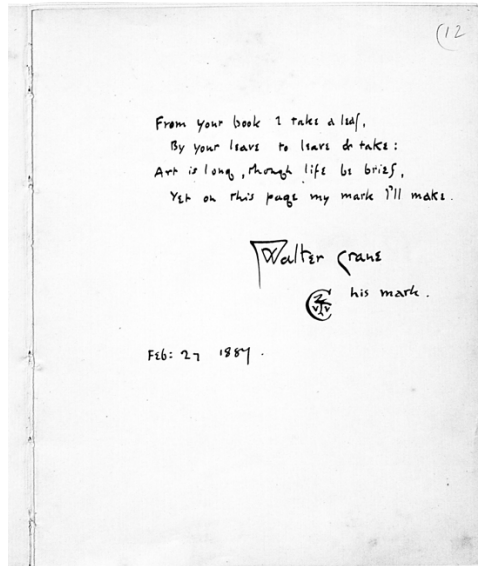 (12
From your book I take a leaf,
By your leave to leave & take:
Art is long, though life be brief,
Yet on this page my mark I'll make.
Walter Crane
his mark.
Feb: 27 1887.